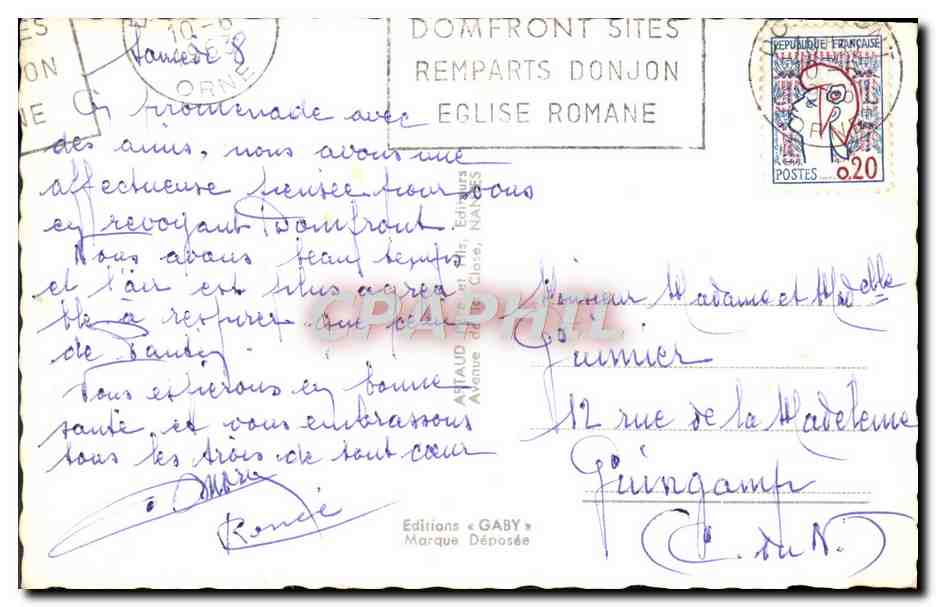 ES
ON
NE
10-6
ORNE
DOMFRONT SITES
REMPARTS DONJON
EGLISE ROMANE
REPUBLIQUE FRANÇAISE
POSTES 0.20
Samedi 8
En promenade avec
des amis, nous avons une
affectueuse pensée pour vous
en revoyant Domfront.
Nous avons beau temps
et l'air est plus agréa
ble à respirer que celui
de Pantin
Nous espérons en bonne
santé, et vous embrassons
tous les trois de tout cœur
René
ARTAUD Père et Fils, Editeurs
Avenue de la Close, NANTES
CPAPHIL
Monsieur Madame et Madelle
Guimier
12 rue de la Madeleine
Guingamp
(C. du N.)
Editions « GABY »
Marque Déposée